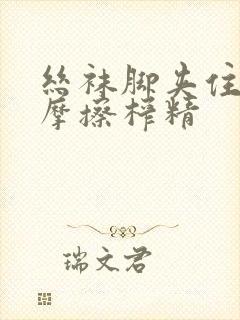 丝袜脚夹住
摩擦榨精
瑞文君